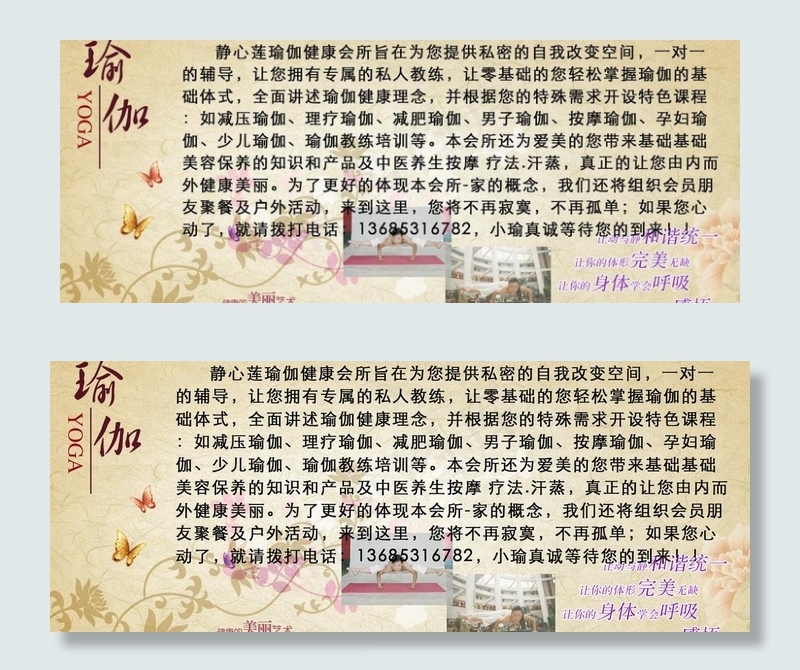 瑜伽
YOGA
静心莲瑜伽健康会所旨在为您提供私密的自我改变空间，一对一
的辅导，让您拥有专属的私人教练，让零基础的您轻松掌握瑜伽的基
础体式，全面讲述瑜伽健康理念，并根据您的特殊需求开设特色课程
：如减压瑜伽、理疗瑜伽、减肥瑜伽、男子瑜伽、按摩瑜伽、孕妇瑜
伽、少儿瑜伽、瑜伽教练培训等。本会所还为爱美的您带来基础基础
美容保养的知识和产品及中医养生按摩 疗法.汗蒸，真正的让您由内而
外健康美丽。为了更好的体现本会所-家的概念，我们还将组织会员朋
友聚餐及户外活动，来到这里，您将不再寂寞，不再孤单；如果您心
动了，就请拨打电话：13685316782，小瑜真诚等待您的到来！！
让动与静和谐统一
让你的体形完美无缺
让你的身体学会呼吸
健康的美丽艺术
瑜伽
YOGA
静心莲瑜伽健康会所旨在为您提供私密的自我改变空间，一对一
的辅导，让您拥有专属的私人教练，让零基础的您轻松掌握瑜伽的基
础体式，全面讲述瑜伽健康理念，并根据您的特殊需求开设特色课程
：如减压瑜伽、理疗瑜伽、减肥瑜伽、男子瑜伽、按摩瑜伽、孕妇瑜
伽、少儿瑜伽、瑜伽教练培训等。本会所还为爱美的您带来基础基础
美容保养的知识和产品及中医养生按摩 疗法.汗蒸，真正的让您由内而
外健康美丽。为了更好的体现本会所-家的概念，我们还将组织会员朋
友聚餐及户外活动，来到这里，您将不再寂寞，不再孤单；如果您心
动了，就请拨打电话：13685316782，小瑜真诚等待您的到来！！
让动与静和谐统一
让你的体形完美无缺
让你的身体学会呼吸
健康的美丽艺术